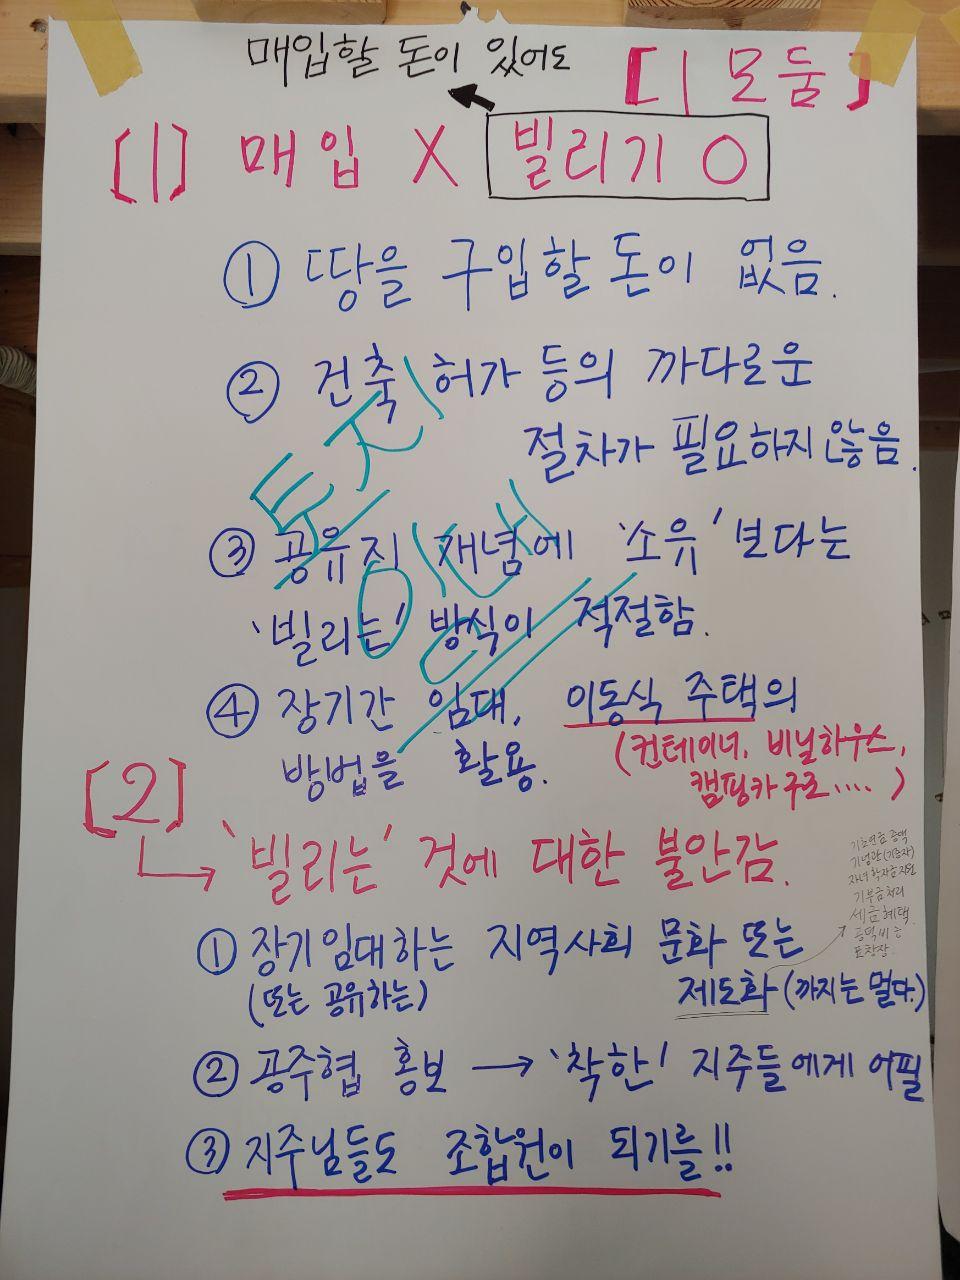 매입할 돈이 있어도
[1 모둠]
[1] 매입 X 빌리기 O
① 땅을 구입할 돈이 없음.
② 건축 허가 등의 까다로운
절차가 필요하지 않음.
토지
③ 공유지 개념에 '소유' 보다는
'빌리는' 방식이 적절함.
④ 장기간 임대, 이동식 주택의
방법을 활용. (컨테이너, 비닐하우스,
캠핑카 구조....)
[2]
'빌리는' 것에 대한 불안감.
기초연금 증액
기념관(기증자)
자녀 학자금 지원
기부금 처리
세금 혜택.
공덕비
표창장.
① 장기임대하는 지역사회 문화 또는
(또는 공유하는) 제도화 (까지는 멀다.)
② 공주협 홍보 → '착한' 지주들에게 어필
③ 지주님들도 조합원이 되기를!!